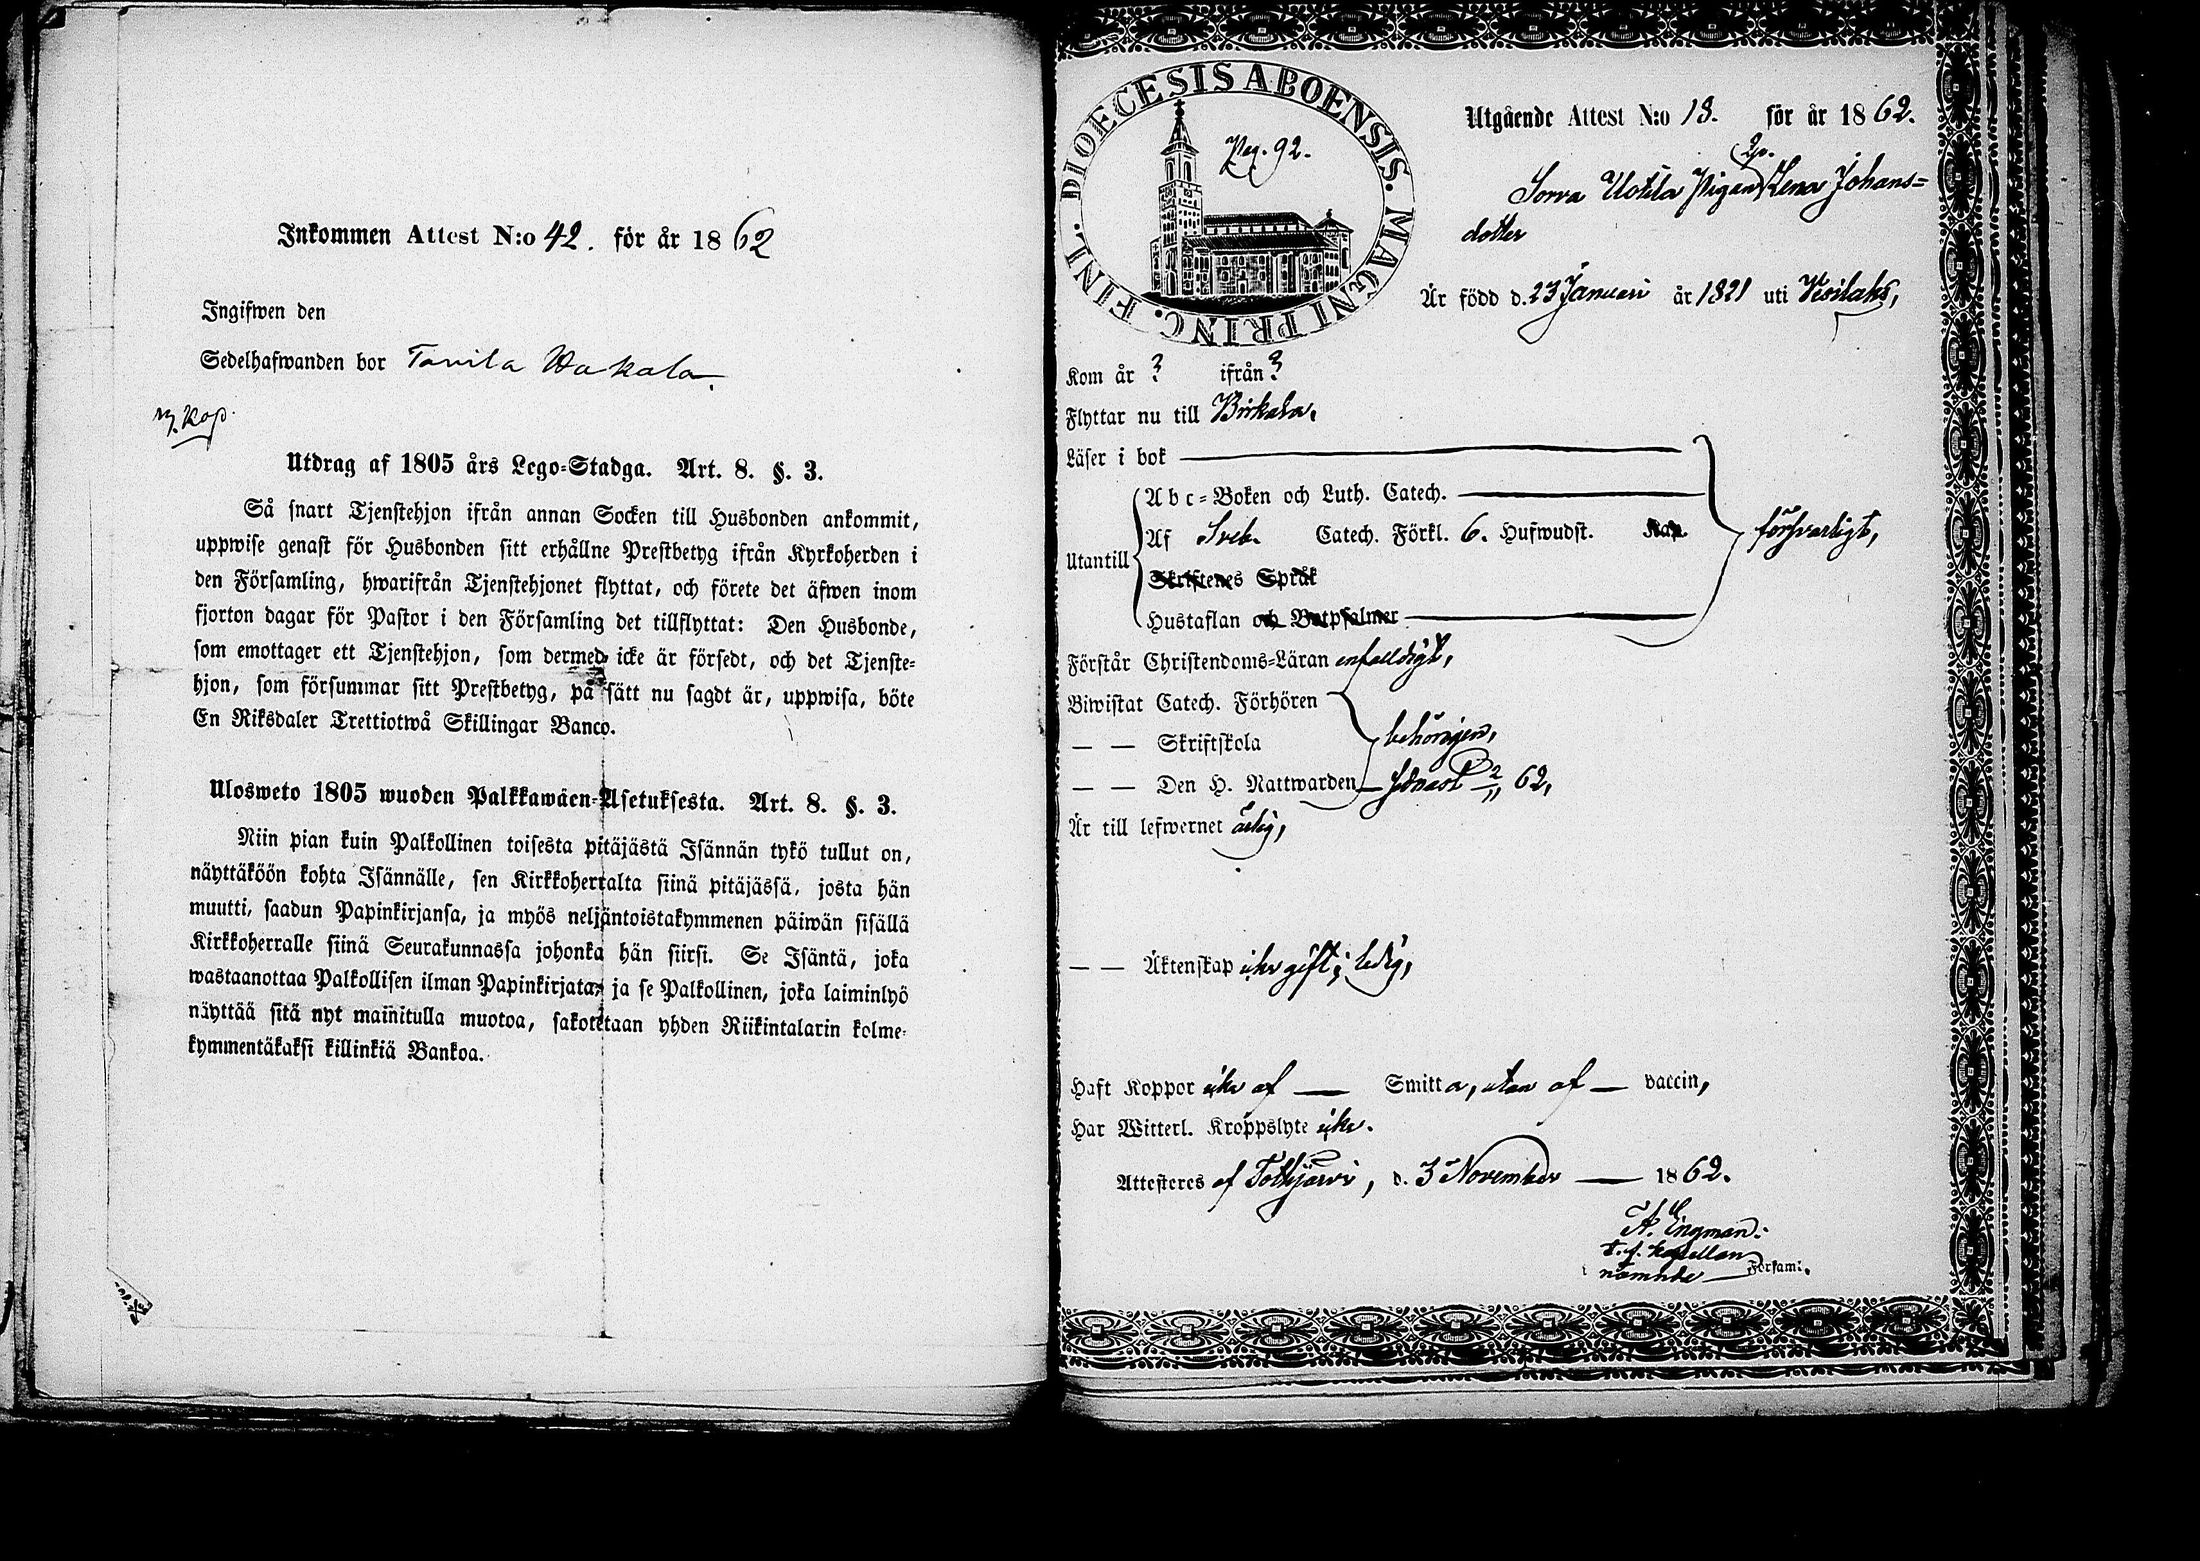 Inkommen Attest N:o 42. för år 1862
Ingifwen den
Sedelhafwanden bor Tanila Wakala.
Utdrag af 1805 års Lego=Stadga. Art. 8. §. 3.
Så snart Tjenstehjon ifrån annan Socken till Husbonden ankommit,
uppwise genast för Husbonden sitt erhållne Prestbetyg ifrån Kyrkoherden i
den Församling, hwarifrån Tjenstehjonet flyttat, och förete det äfwen inom
fjorton dagar för Pastor i den Församling det tillflyttat: Den Husbonde,
som emottager ett Tjenstehjon, som dermed icke är försedt, och det Tjenste=
hjon, som försummar sitt Prestbetyg, på sätt nu sagdt är, uppwisa, böte
En Riksdaler Trettiotwå Skillingar Banco.
Ulosweto 1805 wuoden Palkkawäen=Asetuksesta. Art. 8. §. 3.
Niin pian kuin Palkollinen toisesta pitäjästä Isännän tykö tullut on,
näyttäköön kohta Isännälle, sen Kirkkoherralta siinä pitäjässä, josta hän
muutti, saadun Papinkirjansa, ja myös neljäntoistakymmenen päiwän sisällä
Kirkkoherralle siinä Seurakunnassa johonka hän siirsi. Se Isäntä, joka
wastaanottaa Palkollisen ilman Papinkirjata, ja se Palkollinen, joka laiminlyö
näyttää sitä nyt mainitulla muotoa, sakotetaan yhden Riikintalarin kolme=
kymmentäkaksi killinkiä Bankoa.
DIOECESIS ABOENSIS. MAGNI PRINC. FINL.
Pag. 92.
Utgående Attest N:o 13. för år 1862.
Sorva Uotila Pigan Lena Johans=
dotter
Är född d. 23 Januari år 1821 uti Vesilaks,
Kom år ? ifrån ?
Flyttar nu till Birkala.
Läser i bok
Abc=Boken och Luth. Catech.
Utantill Af Sveb. Catech. Förkl. 6. Hufwudst. Kap. försvarligt,
Skriftenes Språk
Hustaflan och Botpsalmer
Förstår Christendoms=Läran enfaldigt,
Biwistat Catech. Förhören
— — Skriftskola behörigen,
— — Den H. Nattwarden sednast 2/11 62,
Är till lefwernet ärlig,
— — Äktenskap icke gift; ledig,
Haft Koppor icke af — Smitta, utan af — vaccin,
Har Witterl. Kroppslyte icke.
Attesteres af Tottijärvi, d. 3 November — 1862.
A. Engman.
t.f. kapellan
i nämnde Församl.